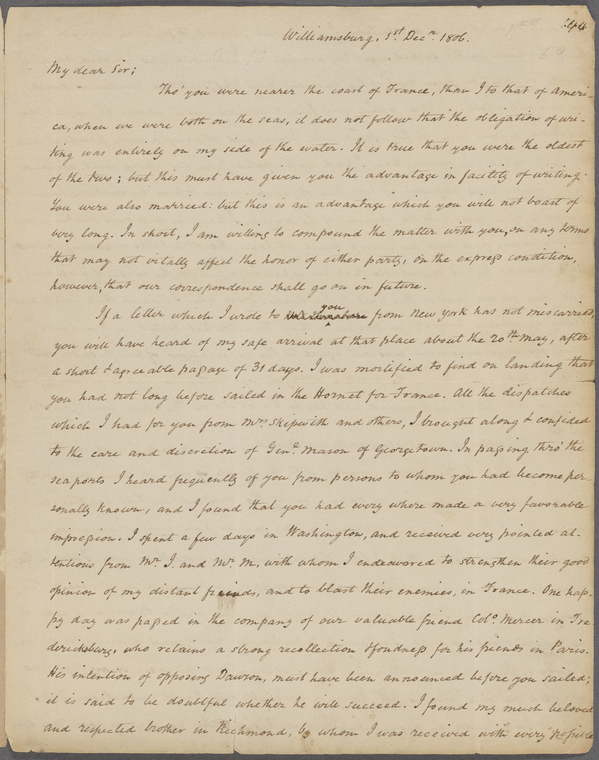 Williamsburg, 1st Decr. 1806.
My dear Sir;
Tho' you were nearer the coast of France, than I to that of Ameri-
ca, when we were both on the seas, it does not follow that the obligation of wri-
ting was entirely on my side of the water. It is true that you were the oldest
of the two; but this must have given you the advantage in facility of writing.
You were also married: but this is an advantage which you will not boast of
very long. In short, I am willing to compound the matter with you, on any terms
that may not vitally affect the honor of either party, on the express condition,
however, that our correspondence shall go on in future.
you
If a letter which I wrote to from New York has not miscarried,
you will have heard of my safe arrival at that place about the 20th May, after
a short & agreeable passage of 31 days. I was mortified to find on landing that
you had not long before sailed in the Hornet for France. All the dispatches
which I had for you from Mr. Skipwith and others, I brought along & confided
to the care and discretion of Genl. Mason of Georgetown. In passing thro' the
seaports I heard frequently of you from persons to whom you had become per-
sonally known, and I found that you had every where made a very favorable
impression. I spent a few days in Washington, and received very pointed at-
tentions from Mr. J. and Mr. M, with whom I endeavored to strengthen their good
opinion of my distant friends, and to blast their enemies, in France. One hap-
py day was passed in the company of our valuable friend Colo. Mercer in Fre
dericksburg, who retains a strong recollection & fondness for his friends in Paris.
His intention of opposing Dawson, must have been announced before you sailed;
it is said to be doubtful whether he will succeed. I found my much beloved
and respected brother in Richmond, by whom I was received with every possible